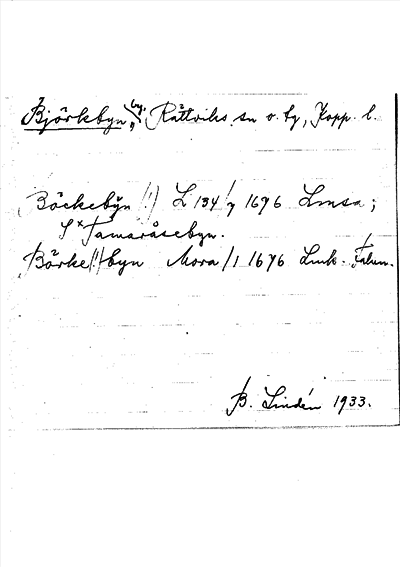 Björkbyn, by, Rättviks sn o. tg, Kopp. l.
Böckebÿn (!) L 134/7 1696 Lmsa;
S* Tamaråsebyn.
Börke(!)byn Mora/1 1676 Lmk. Falun.
B. Lindén 1933.